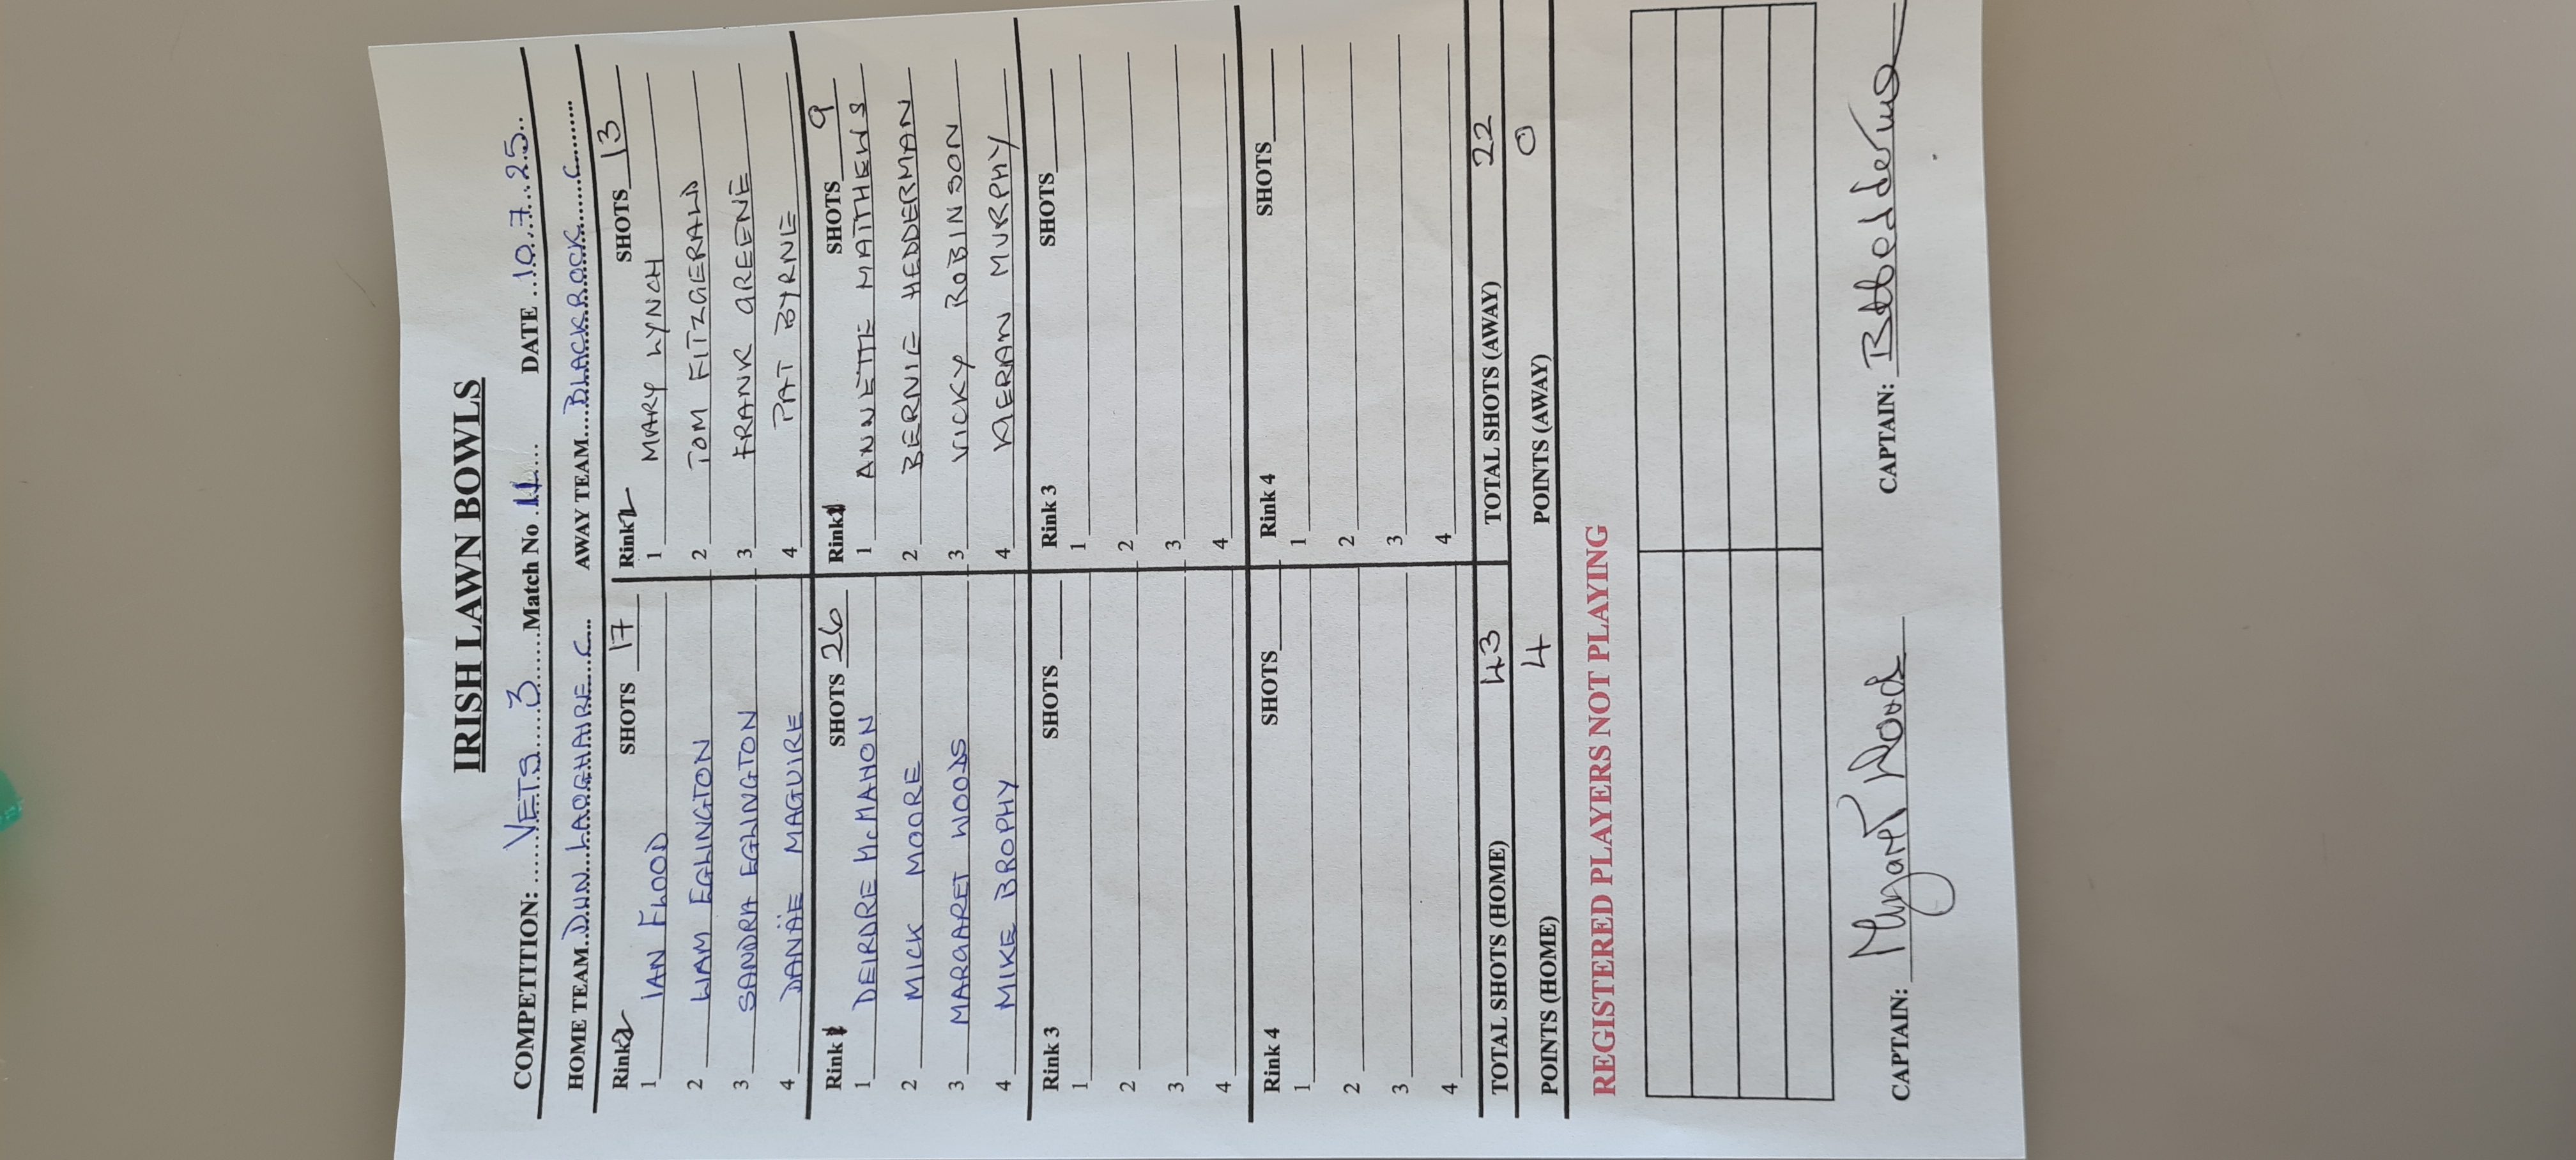 IRISH LAWN BOWLS
COMPETITION: ......VETS......3.........Match No .11.... DATE ...10.7...25...
HOME TEAM..DUN..LAOGHAIRE..C... AWAY TEAM....BLACKROCK......C..........
Rink 2 SHOTS 17 Rink 2 SHOTS 13
1 IAN FLOOD 1 MARY LYNCH
2 LIAM EGLINGTON 2 TOM FITZGERALD
3 SANDRA EGLINGTON 3 FRANK GREENE
4 DANÄE MAGUIRE 4 PAT BYRNE
Rink 1 SHOTS 26 Rink 1 SHOTS 9
1 DEIRDRE McMAHON 1 ANNETTE MATTHEWS
2 MICK MOORE 2 BERNIE HEDDERMAN
3 MARGARET WOODS 3 VICKY ROBINSON
4 MIKE BROPHY 4 KIERAN MURPHY
Rink 3 SHOTS Rink 3 SHOTS
1 1
2 2
3 3
4 4
Rink 4 SHOTS Rink 4 SHOTS
1 1
2 2
3 3
4 4
TOTAL SHOTS (HOME) 43 TOTAL SHOTS (AWAY) 22
POINTS (HOME) 4 POINTS (AWAY) 0
REGISTERED PLAYERS NOT PLAYING
CAPTAIN: CAPTAIN: